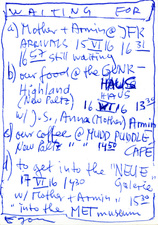 WAITING FOR
a) Mother + Armin @ JFK
ARRIVALS 15 VI 16 16 31
16 57 still waiting
b) our food @ the GUNK-
Highland HAUS
(New Paltz) HAUS
16 VI 16 13 30
w/ J.-S., Anna (Mother) Armin
c) our coffee @ MUDD PUDDLE
New Paltz " " 14 50 CAFE
d) to get into the "NEUE
17 VI 16 1430 Galerie"
w/ Mother + Armin 15 30
"into the MET museum